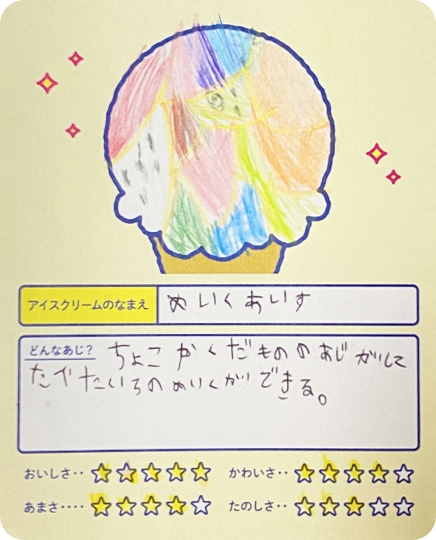 アイスクリームのなまえ めいくあいす
どんなあじ? ちょこ かくだものの あじ がして
たべたいろの めいくが できる。
おいしさ‥ ★★★★★ かわいさ‥ ★★★★☆
あまさ‥‥ ★★★★☆ たのしさ‥ ★★★☆☆